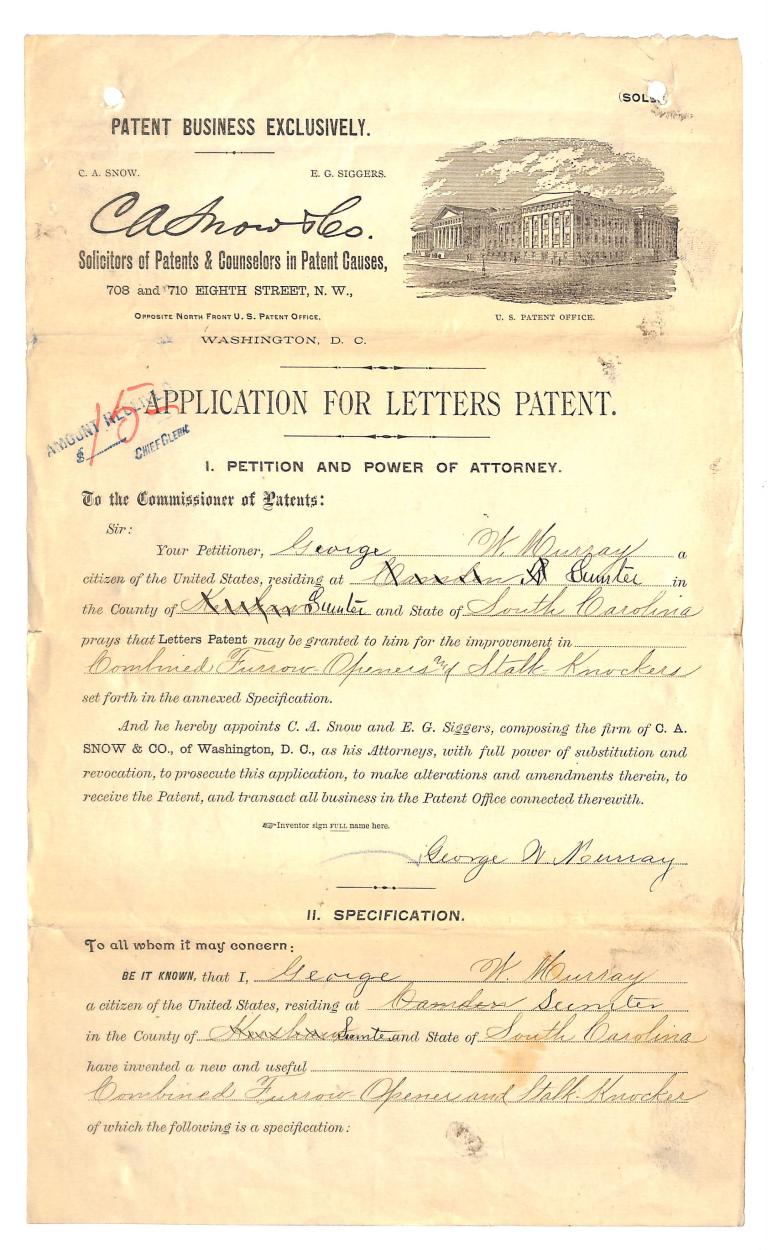 (SOLE)
PATENT BUSINESS EXCLUSIVELY.
C. A. SNOW. E. G. SIGGERS.
C A Snow & Co.
Solicitors of Patents & Counselors in Patent Causes,
708 and 710 EIGHTH STREET, N. W.,
OPPOSITE NORTH FRONT U. S. PATENT OFFICE.
WASHINGTON, D. C.
U. S. PATENT OFFICE.
APPLICATION FOR LETTERS PATENT.
AMOUNT
$ 15
CHIEF CLERK
I. PETITION AND POWER OF ATTORNEY.
To the Commissioner of Patents:
Sir:
Your Petitioner, George W. Murray a
citizen of the United States, residing at Camden Sumter in
the County of Sumter and State of South Carolina
prays that Letters Patent may be granted to him for the improvement in
Combined Furrow-Openers and Stalk-Knockers
set forth in the annexed Specification.
And he hereby appoints C. A. Snow and E. G. Siggers, composing the firm of C. A.
SNOW & CO., of Washington, D. C., as his Attorneys, with full power of substitution and
revocation, to prosecute this application, to make alterations and amendments therein, to
receive the Patent, and transact all business in the Patent Office connected therewith.
Inventor sign FULL name here.
George W. Murray
II. SPECIFICATION.
To all whom it may concern:
BE IT KNOWN, that I, George W. Murray
a citizen of the United States, residing at Camden Sumter
in the County of Sumter and State of South Carolina
have invented a new and useful
Combined Furrow-Opener and Stalk-Knocker
of which the following is a specification: